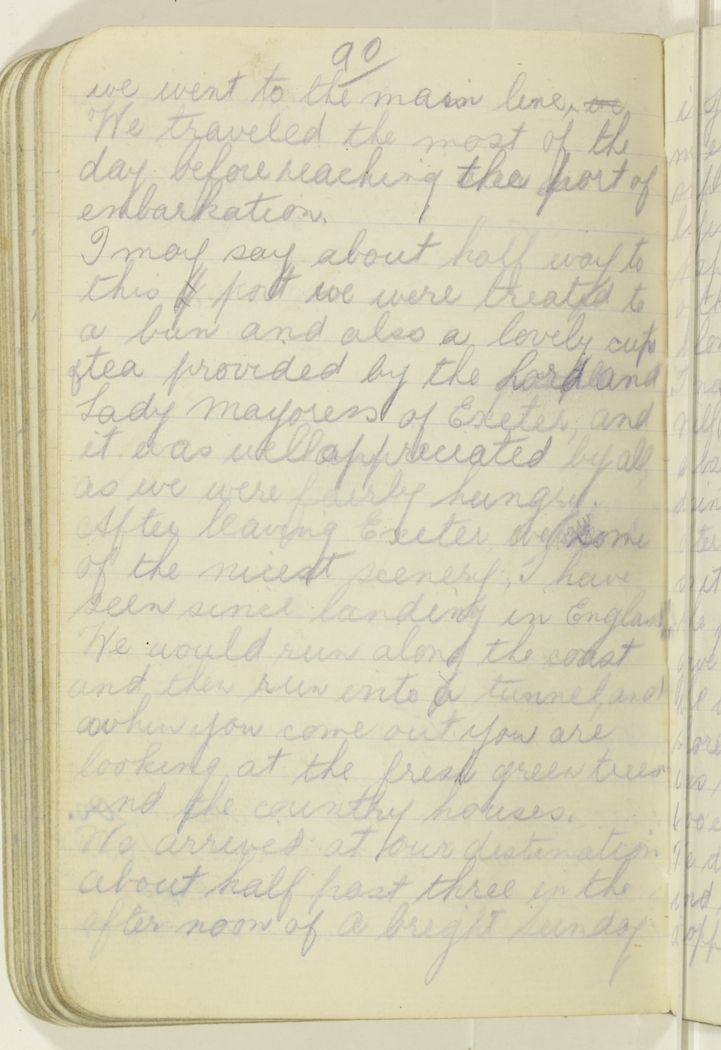 90
we went to the main line, we
We traveled the most of the
day before reaching the port of
embarkation.
I may say about half way to
this port we were treated to
a bun and also a lovely cup
of tea provided by the Lord and
Lady Mayoress of Exeter, and
it was well appreciated by all
as we were fairly hungry.
After leaving Exeter we some
of the nicest scenery, I have
seen since landing in England
We would run along the coast
and then run into a tunnel, and
when you come out you are
looking at the fresh green trees
and the country houses.
We arrived at our destination
about half past three in the
after noon of a bright Sunday